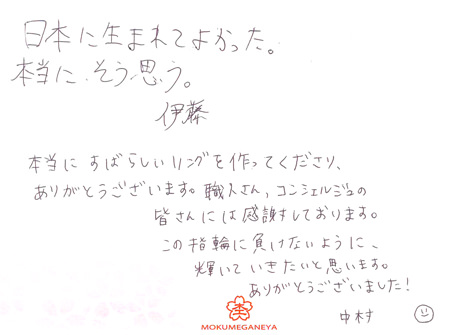 日本に生まれてよかった。
本当に、そう思う。
伊藤
本当にすばらしいリングを作ってくださり、
ありがとうございます。職人さん、コンシェルジュの
皆さんには感謝しております。
この指輪に負けないように、
輝いていきたいと思います。
ありがとうございました!
中村
MOKUMEGANEYA